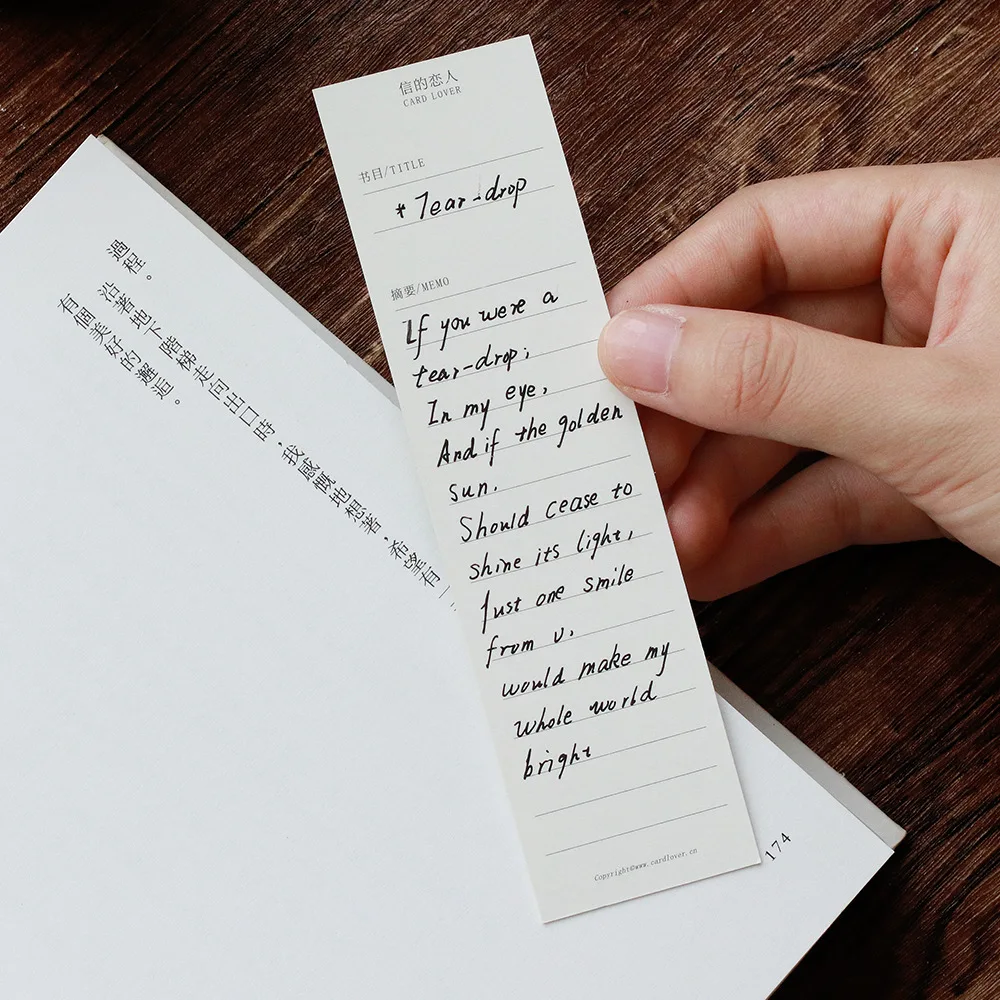 信的恋人
CARD LOVER
书目/TITLE
* Tear-drop
摘要/MEMO
If you were a
tear-drop;
In my eye,
And if the golden
sun.
Should cease to
shine its light,
Just one smile
from u,
would make my
whole world
bright
Copyright©www.cardlover.cn
過程。
沿著地下階梯走向出口時,我感慨地想著,希望有一
有個美好的邂逅。
174